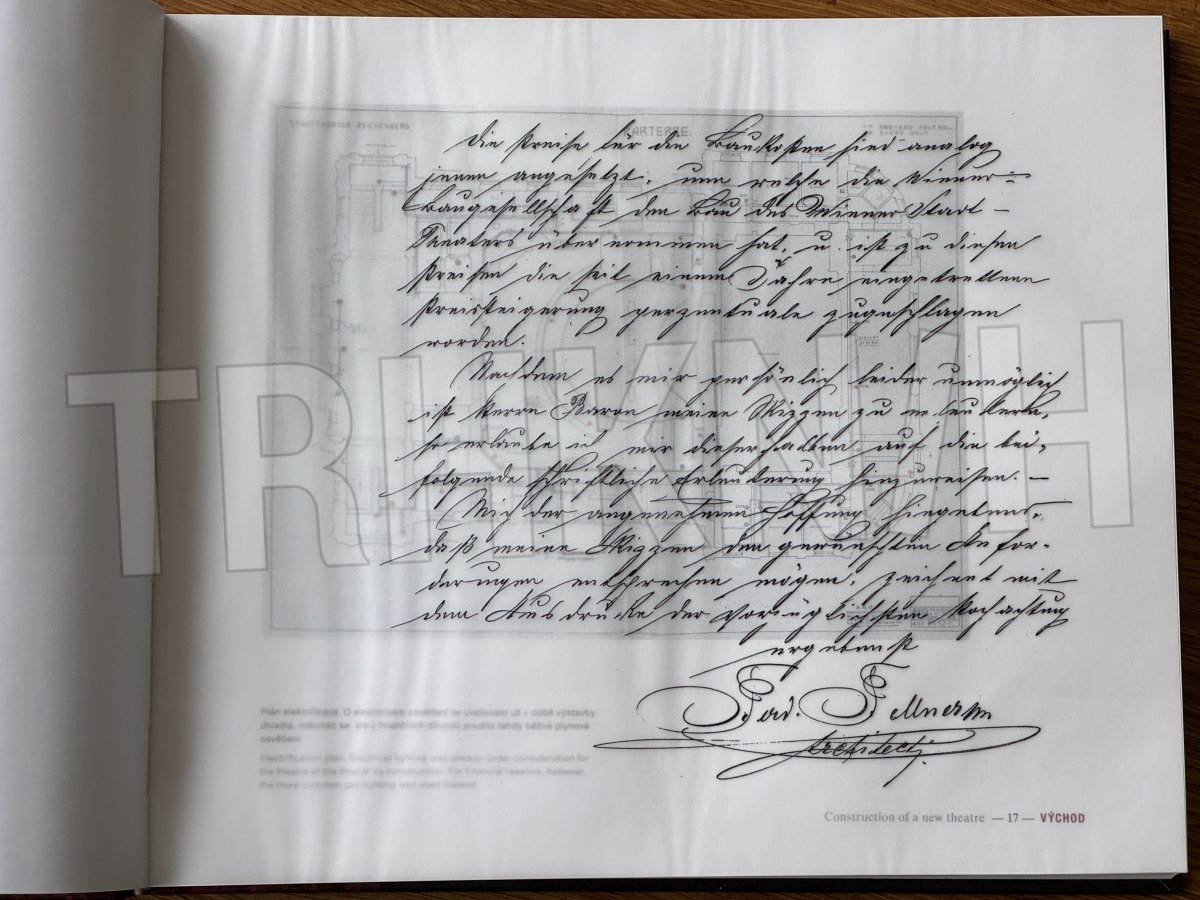 STADTTHEATER REICHENBERG
PARTERRE.
Die Preise für die Baukosten sind analog
jenen angesetzt, um welche die Wiener-
Baugesellschaft den Bau des Wiener Stadt-
Theaters übernommen hat, u. ist zu diesen
Preisen die seit einem Jahre eingetrettene
Preissteigerung perzentuale zugeschlagen
worden.
Nachdem es mir persönlich leider unmöglich
ist Herrn Baron meine Skizzen zu erleutern,
so erlaube ich mir dieserhalben auf die bei-
folgende schriftliche Erleuterung hinzuweisen. —
Mich der angenehmen Hoffnung hingebend,
daß meine Skizzen den gewünschten Anfor-
derungen entsprechen mögen, zeichent mit
dem Ausdrucke der vorzüglichsten Hochachtung
ergebenst
Ferd. Fellner
Architect.
Plán elektrifikace. O elektrickém osvětlení se uvažovalo už v době výstavby
divadla, nakonec se ale z finančních důvodů použilo tehdy běžné plynové
osvětlení
Electrification plan. Electrical lighting was already under consideration for
the theatre at the time of its construction. For financial reasons, however,
the more common gas lighting was used instead
Construction of a new theatre — 17 — VÝCHOD